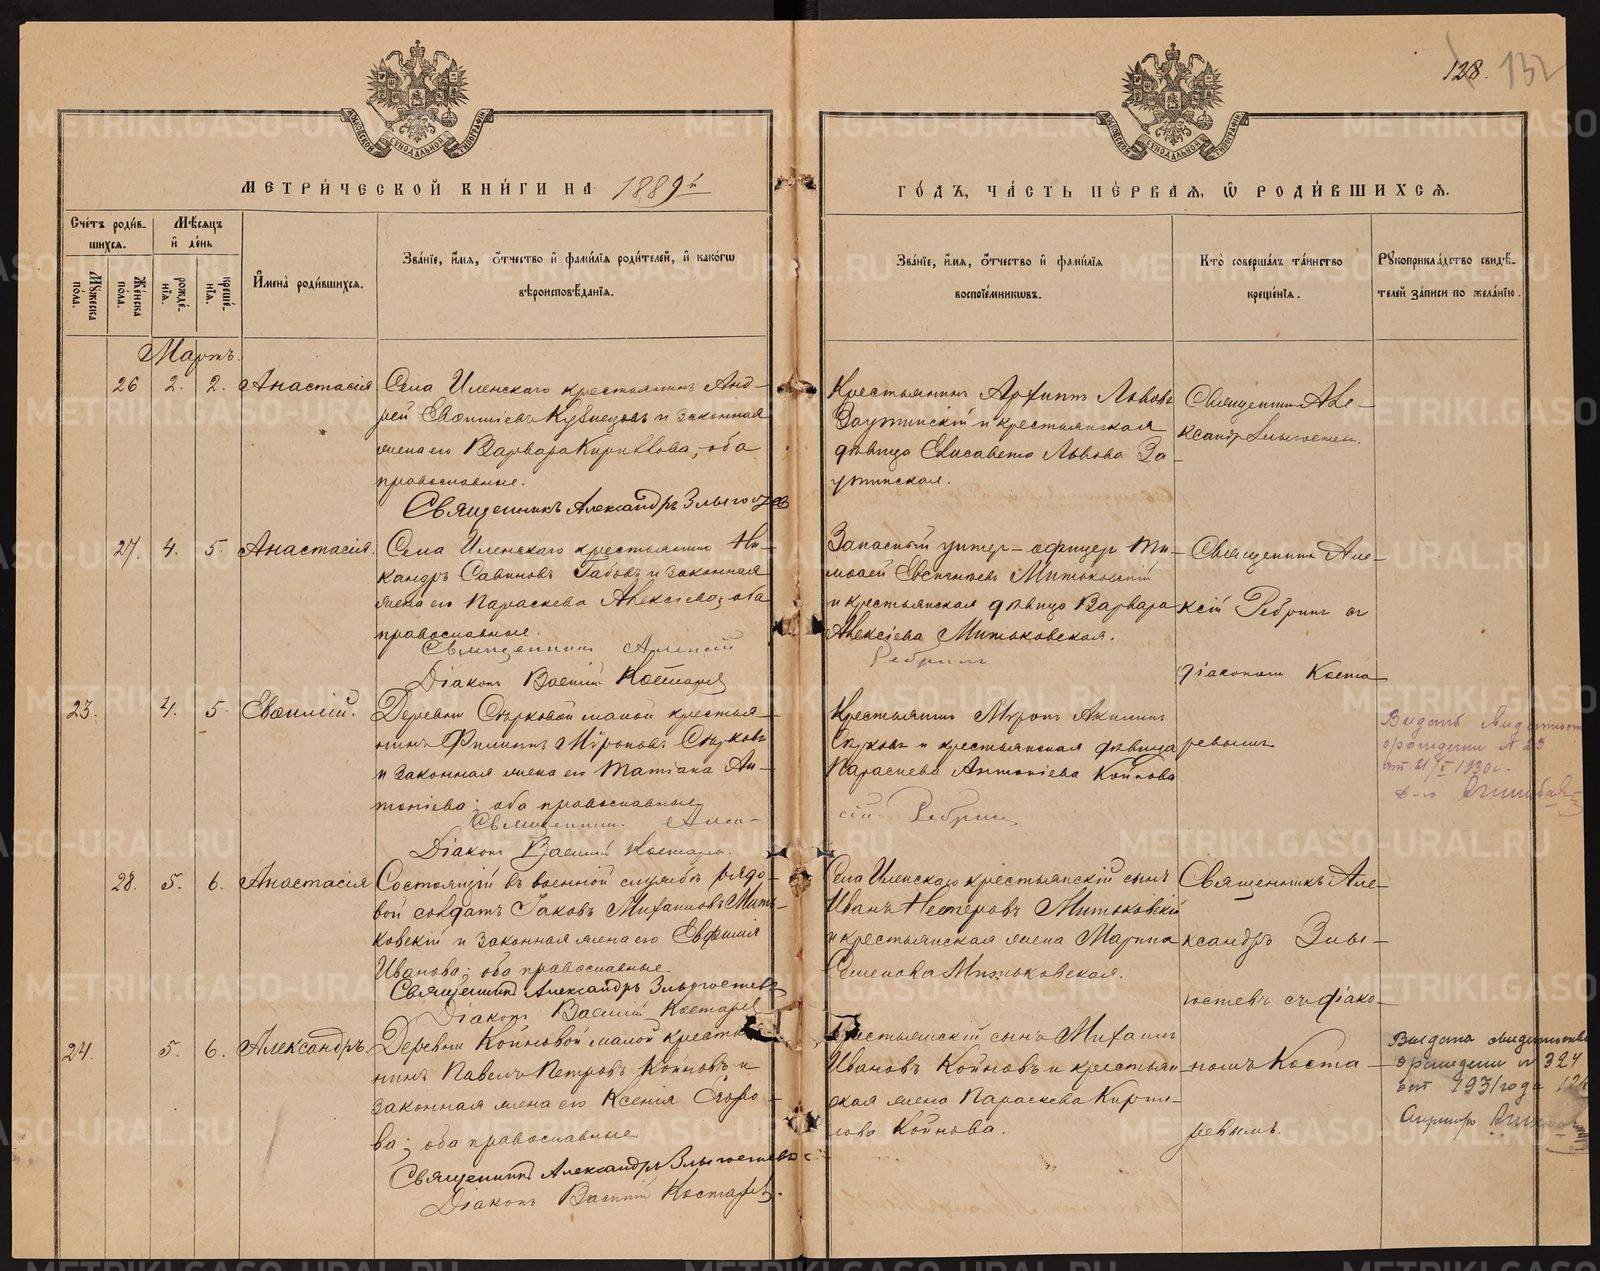 128. 132
МЕТРИ́ЧЕСКОЙ КНИ́ГИ НА 1889й
ГО́ДЪ, ЧА́СТЬ ПЕ́РВАЯ, Ѿ РОДИ́ВШИХСЯ.
Сче́тъ роди́вшихся.
Мѣ́сяцъ и҆ де́нь
Мꙋ́жеска по́ла.
Же́нска по́ла.
рожде́нїя.
креще́нїя.
И҆мена̀ роди́вшихся.
Зва́нїе, и҆́мя, ѻ҆́тчество и҆ фами́лїя роди́телей, и҆ како́гѡ
вѣроисповѣ́данїя.
Зва́нїе, и҆́мя, ѻ҆́тчество и҆ фами́лїя
воспрїе́мникѡвъ.
Кто̀ соверша́лъ та́инство
креще́нїя.
Рꙋкоприкла́дство свидѣ́телей за́писи по жела́нїю.
Мартъ.
26 2. 2. Анастасія
Села Иленскаго крестьянинъ Анд-
рей Евѳиміевъ Кузнецовъ и законная
жена его Варвара Кириллова; оба
православные.
Священникъ Александръ Злыгостевъ
Крестьянинъ Архипъ Львовъ
Заутинскій и крестьянская
дѣвица Елисавета Львова За-
утинская.
Священникъ Але-
ксандръ Злыгостевъ.
27. 4. 5. Анастасія.
Села Иленскаго крестьянинъ Ни-
кандръ Савиновъ Габовъ и законная
жена его Параскева Алексіева; оба
православные.
Священникъ Алексій
Ребринъ
Діаконъ Василій Костаревъ
Запасный унтер-офицер Ти-
моѳей Евсигніевъ Митьковскій
и крестьянская дѣвица Варвара
Алексіева Митьковская.
Священникъ Але-
ксій Ребринъ съ
діакономъ Коста-
ревымъ
23. 4. 5. Евѳимій.
Деревни Сѣрковой малой крестья-
нинъ Филиппъ Мѵроновъ Сѣрковъ
и законная жена его Татіана Ан-
тоніева; оба православные
Священникъ Алек-
сій Ребринъ
Діаконъ Василій Костаревъ.
Крестьянинъ Мѵронъ Акимовъ
Сѣрковъ и крестьянская дѣвица
Параскева Антоніева Койнова
Выдано
о рождении № 23
от 21/I 1930 г.
28. 5. 6. Анастасія
Состоящій въ военной службѣ рядо-
вой солдатъ Іаковъ Михаиловъ Мить-
ковскій и законная жена его Евфимія
Иванова; оба православные
Священникъ Александръ Злыгостевъ
Діаконъ Василій Костаревъ
Села Иленскаго крестьянскій сынъ
Иванъ Несторовъ Митьковскій
и крестьянская жена Марина
Семенова Митьковская.
Священникъ Але-
ксандръ Злы-
гостевъ съ діако-
номъ Коста-
ревымъ.
24. 5. 6. Александръ.
Деревни Койновой малой крестья-
нинъ Павелъ Петровъ Койновъ и
законная жена его Ксенія Егоро-
ва; оба православные
Священникъ Александръ Злыгостевъ
Діаконъ Василій Костаревъ.
Крестьянскій сынъ Михаилъ
Ивановъ Койновъ и крестьян-
ская жена Параскева Кирил-
лова Койнова.
Выдано свидетельство
о рождении № 324
от 1931 года